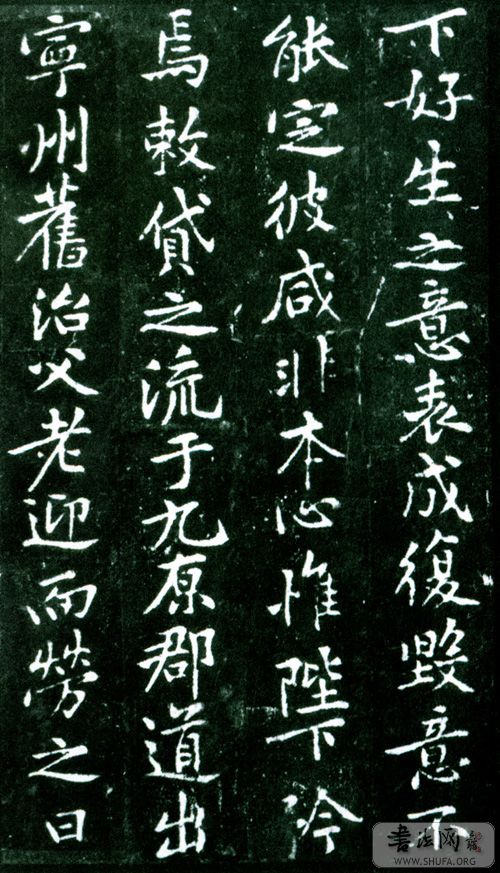 下好生之意表成復毀意不
能定彼咸非本心惟陛下矜
焉敕貸之流于九原郡道出
寧州舊治父老迎而勞之曰
書法网
WWW.SHUFA.ORG